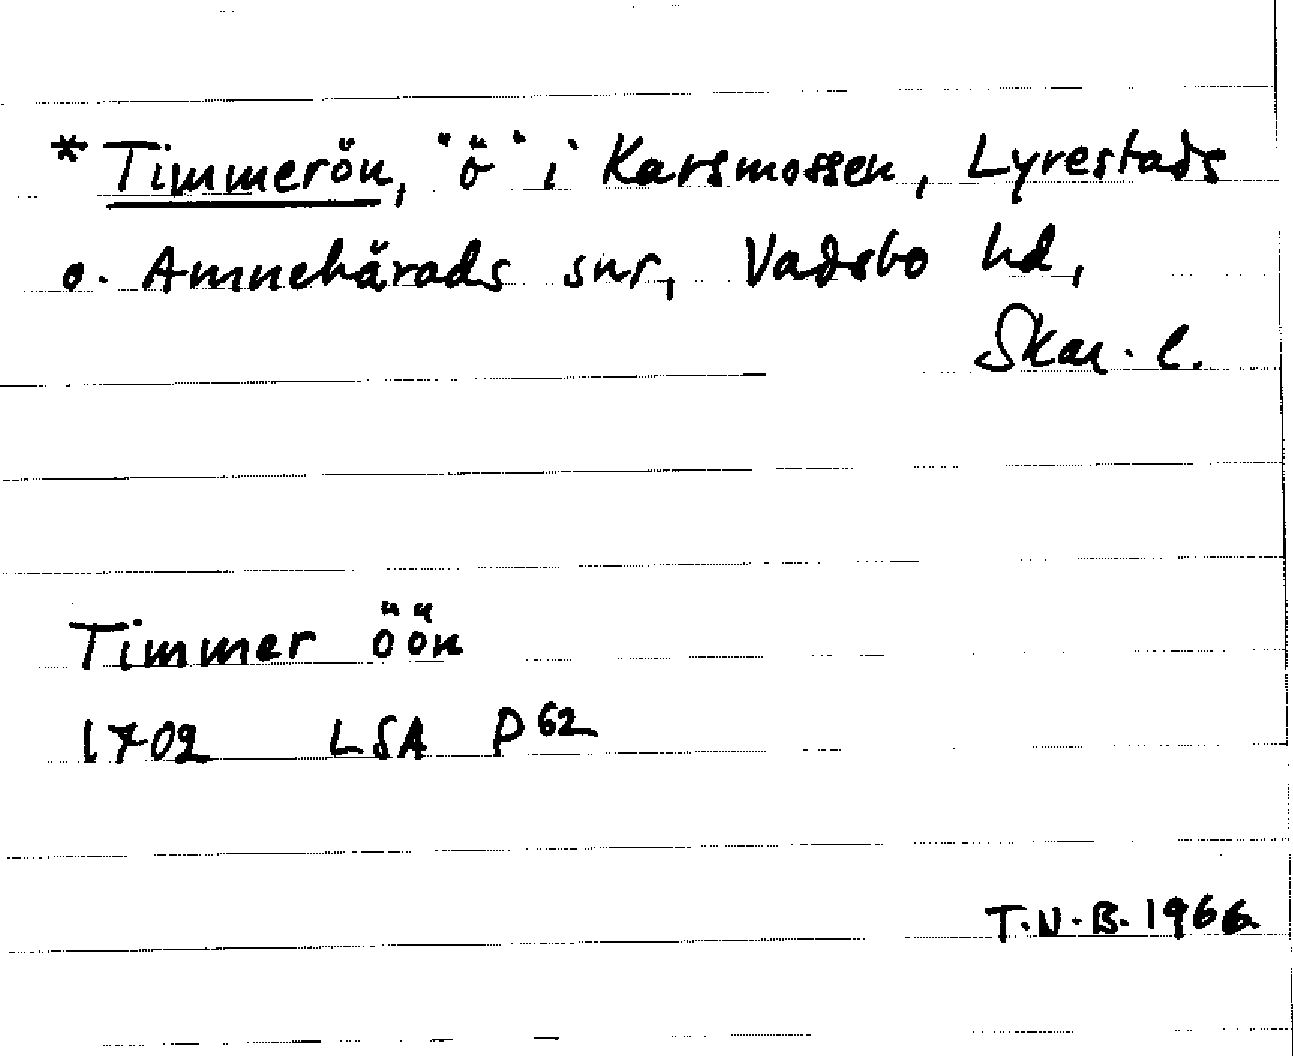 *Timmerön, "ö" i Karsmossen, Lyrestads
o. Amnehärads snr, Vadsbo hd,
Skar. l.
Timmer öön
1702 LSA P62
T.N.B. 1966